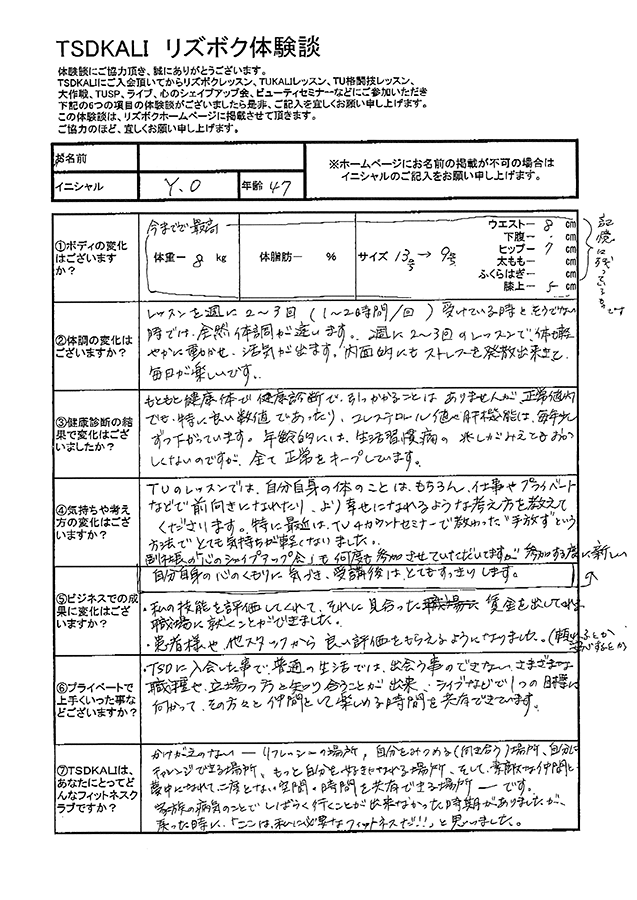 TSDKALI リズボク体験談
体験談にご協力頂き、誠にありがとうございます。
TSDKALIにご入会頂いてからリズボクレッスン、TUKALIレッスン、TU格闘技レッスン、
大作戦、TUSP、ライブ、心のシェイプアップ会、ビューティセミナーなどにご参加いただき
下記の6つの項目の体験談がございましたら是非、ご記入を宜しくお願い申し上げます。
この体験談は、リズボクホームページに掲載させて頂きます。
ご協力のほど、宜しくお願い申し上げます。
お名前
※ホームページにお名前の掲載が不可の場合は
イニシャルのご記入をお願い申し上げます。
イニシャル Y.O 年齢 47
①ボディの変化
はございます
か?
今までで最高
体重ー 8 kg 体脂肪ー % サイズ 13号→9号
ウエストー 8 cm
下腹ー cm
ヒップー 7 cm
太ももー cm
ふくらはぎー cm
膝上ー 5 cm
②体調の変化は
ございますか?
レッスンを週に2~3回(1~2時間/回)受けている時とそうでない
時では、全然体調が違います。週に2~3回のレッスンで、体も軽
やかに動かせ、活気が出ます。内面的にもストレスを発散出来て、
毎日が楽しいです。
③健康診断の結
果で変化はござ
いましたか?
もともと健康体で健康診断で、引っかかることはありませんが、正常値内
でも、特に良い数値であったり、コレステロール値や肝機能は、毎年少し
ずつ下がっています。年齢的には、生活習慣病の兆しがみえてもおか
しくないのですが、全て正常をキープしています。
④気持ちや考え
方の変化はござ
いますか?
TUのレッスンでは、自分自身の体のことは、もちろん、仕事やプライベート
などで前向きになれたり、より幸せになれるような考え方を教えて
くださいます。特に最近は、TU4カウントセミナーで教わった"手放す"という
方法でとても気持ちが軽くなりました。
副社長の「心のシェイプアップ会」も何度も参加させていただいてますが参加する度に新しい
自分自身の心のくもりに気づき、受講後は、とてもすっきりします。
⑤ビジネスでの成
果に変化はござ
いますか?
・私の技能を評価してくれて、それに見合った賃金を出してくれる
職場に就くことができました。
・患者様や他スタッフから良い評価をもらえるようになりました。
⑥プライベートで
上手くいった事な
どございますか?
・TSDに入会した事で、普通の生活では、出会う事のできない、さまざまな
職種や、立場の方と知り合うことが出来、ライブなどで1つの目標に
向かって、その方々と仲間として楽しめる時間を共有できています。
⑦TSDKALIは、
あなたにとってど
んなフィットネスク
ラブですか?
かけがえのない ― リフレッシュの場所、自分をみつめる(向き合う)場所、自分に
チャレンジできる場所、もっと自分を好きになれる場所、そして、素敵な仲間と
夢中になれて、二度とない空間・時間を共有できる場所 ― です。
家族の病気のことでしばらく行くことが出来なかった時期がありましたが、
戻った時に、「ここは、私に必要なフィットネスだ!!」と思いました。